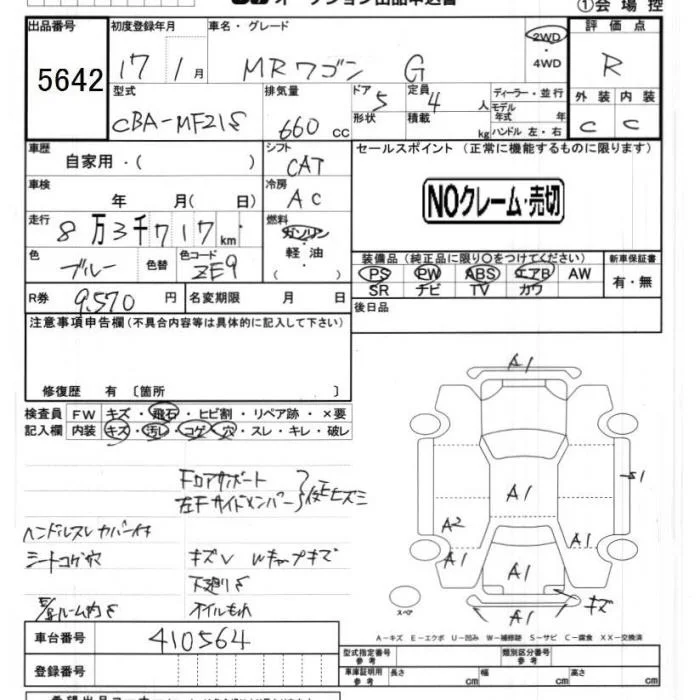 ①会場控
出品番号 初度登録年月 車名・グレード 2WD・4WD 評価点
5642 17 1月 MRワゴン G R
型式 排気量 ドア 5 定員 4人 ディーラー・並行 外装 内装
CBA-MF21S 660cc 形状 積載 kg モデル年式 年 ハンドル 左・右 C C
車歴 シフト セールスポイント (正常に機能するものに限ります)
自家用・( ) CAT
車検 冷房 NOクレーム・売切
年 月( 日) AC
走行 燃料
8万3千717km ガソリン・軽油・( )
色 色替 色コード 装備品 (純正品に限り○をつけてください) 新車保証書
ブルー ZE9 PS PW ABS エアB AW 有・無
SR チビ TV カワ
R券 9,570円 名変期限 月 日 後日品
注意事項申告欄(不具合内容等は具体的に記入して下さい)
修復歴 有 〔箇所 〕
検査員 FW キズ・飛石・ヒビ割・リペア跡・×要
記入欄 内装 キズ・汚レ・コゲ・穴・スレ・キレ・破レ
Fロアサポート
左Fサイドメンバー
ハンドルスレ カバー付
シートコゲ穴 キズV Wキャップキズ
下廻りS
ルーム内S オイルもれ
A1
S1
A1
A2
A1
A1
A1
キズ
A1
スペア
A-キズ E-エクボ U-凹み W-補修跡 S-サビ C-腐食 XX-交換済
車台番号 410564
型式指定番号 参考 類別区分番号 参考
登録番号 車庫証明用 参考 長さ cm 幅 cm 高さ cm